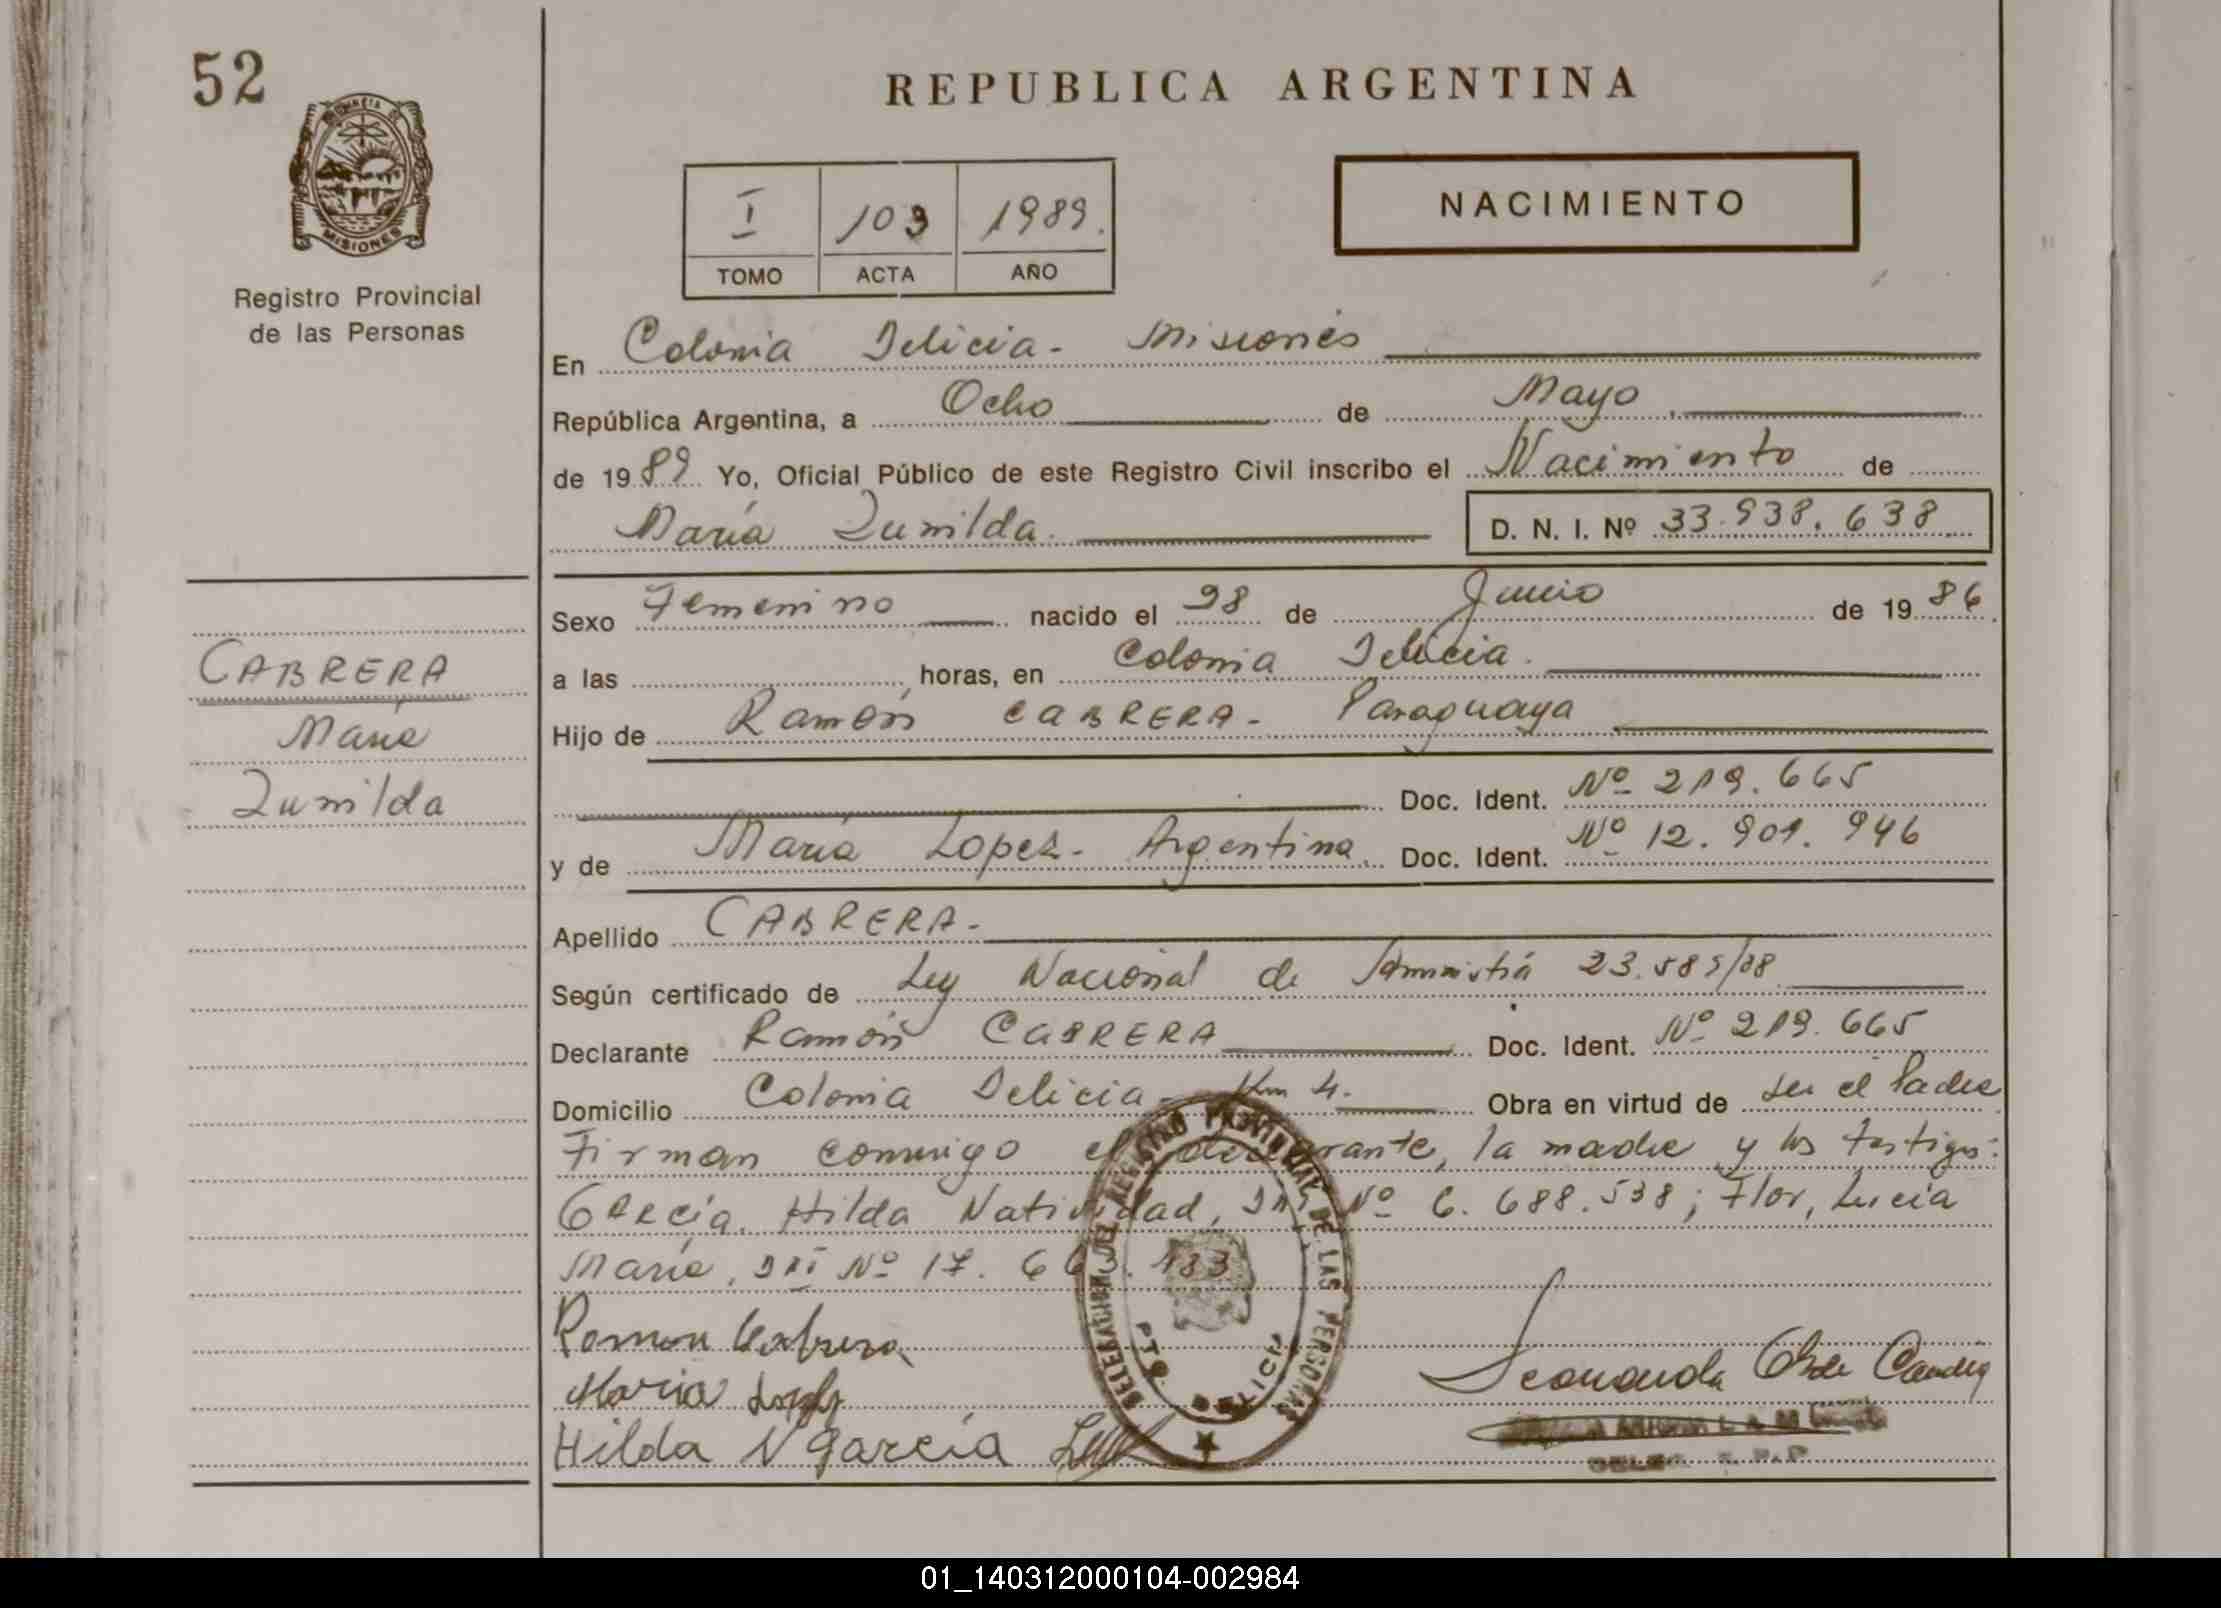 52
REPUBLICA ARGENTINA
PROVINCIA
MISIONES
Registro Provincial
de las Personas
I 103 1989.
TOMO ACTA AÑO
NACIMIENTO
En Colonia Delicia - Misiones
República Argentina, a Ocho de Mayo
de 1989 Yo, Oficial Público de este Registro Civil inscribo el Nacimiento de
María Zunilda. D. N. I. Nº 33.938.638
Sexo Femenino nacido el 28 de Junio de 1986
a las horas, en Colonia Delicia.
Hijo de Ramón CABRERA - Paraguaya
Doc. Ident. Nº 219.665
y de María Lopez - Argentina Doc. Ident. Nº 12.901.946
Apellido CABRERA -
Según certificado de Ley Nacional de Amnistía 23.585/88
Declarante Ramón CABRERA Doc. Ident. Nº 219.665
Domicilio Colonia Delicia - Km 4. Obra en virtud de ser el Padre
Firman conmigo el declarante, la madre y los testigos:
García, Hilda Natividad, DNI Nº 6.688.538; Flor, Lucia
María, DNI Nº 17. 183
Ramon Cabrera
Maria Lopez
Hilda N García
CABRERA
María
Zunilda
DELEGACION DEL REGISTRO PROVINCIAL DE LAS PERSONAS
PTO. DELICIA
01_140312000104-002984